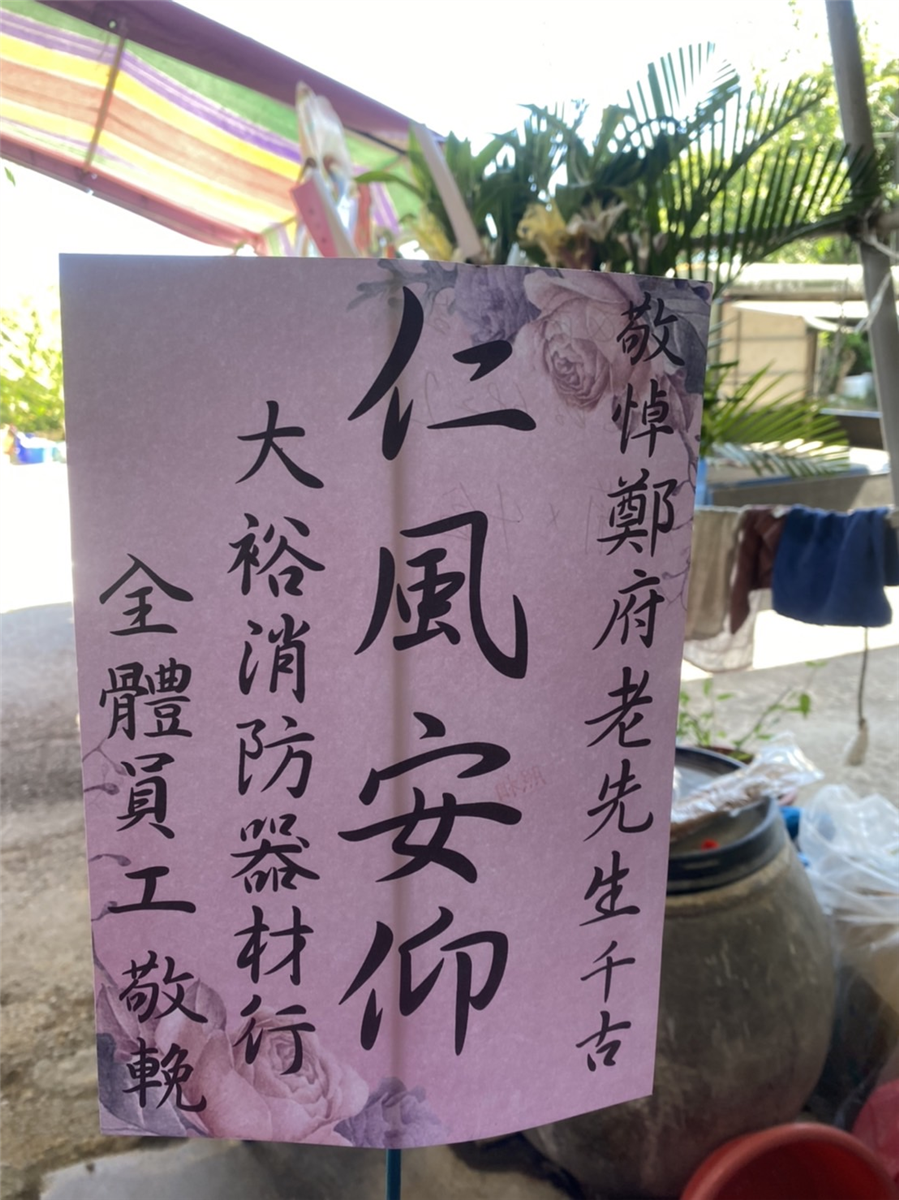 敬悼鄭府老先生千古
仁風安仰
大裕消防器材行
全體員工敬輓